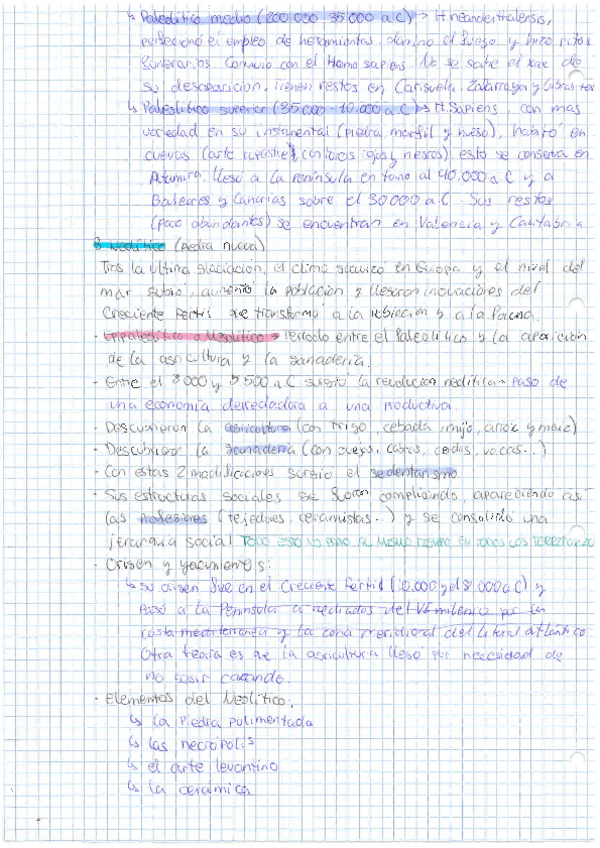 ↳ Paleolítico medio (200 000 - 35 000 a.C) → H. neanderthalensis,
perfeccionó el empleo de herramientas, domino el fuego y hizo ritos
funerarios. Convivio con el Homo sapiens. No se sabe el xq de
su desaparicion, tienen restos en Cariguela, Zafarraya y Gibraltar
↳ Paleolítico superior (35 000 - 10.000 a.C) → H. Sapiens, con mas
variedad en su instrumental (piedra, marfil y hueso), habitó en
cuevas (arte rupestre, con toros rojos y negros), esto se conserva en
Altamira. Llegó a la Península en torno al 40.000 a.C y a
Baleares y Canarias sobre el 30000 a.C. Sus restos
(poco abundantes) se encuentran en Valencia y Cantabria
Neolítico (piedra nueva)
Tras la última glaciación, el clima suavizó en Europa y el nivel del
mar subió, aumentó la población y llegaron inovaciones del
Creciente Fertil que transformó a la población y a la
- Epipaleolítico o Mesolítico → Periodo entre el Paleolítico y la aparición
de la agricultura y la ganadería.
- Entre el 8000 y 5500 a.C surgió la revolucion neolítica → paso de
una economía depredadora a una productiva.
- Descubrieron la agricultura (con trigo, cebada, mijo, arroz y maiz)
- Descubrieron la ganadería (con ovejas, cabras, cerdos, vacas...)
- Con estas 2 modificaciones surgió el sedentarismo
- Sus estructuras sociales se fueron complicando, apareciendo así
las profesiones (tejedores, ceramistas...) y se consolidó una
jerarquía social TODO ESTO NO PASÓ AL MISMO TIEMPO EN TODOS LOS TERRITORIOS
- Origen y yacimientos:
↳ su origen fue en el Creciente Fértil (10.000 y el 8.000 a.C) y
pasó a la Península a mediados del VI milenio por la
costa mediterranea y la zona meridional del litoral atlántico
Otra teoría es que la agricultura llegó por necesidad de
no seguir cazando.
- Elementos del Neolítico.
↳ la piedra pulimentada
↳ las necrópolis
↳ el arte levantino
↳ la cerámica